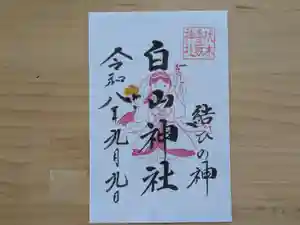 結びの神
白山神社
令和八年九月九日